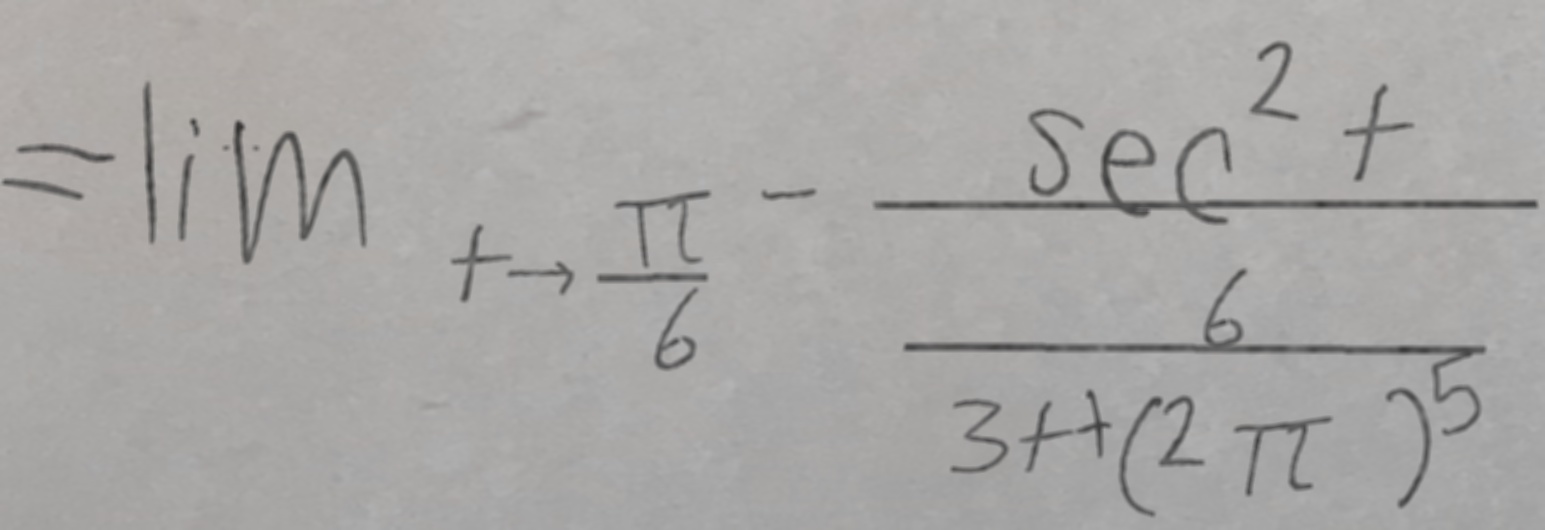 = lim t→π/6 - sec² t / (6 / (3t+(2π)⁵))